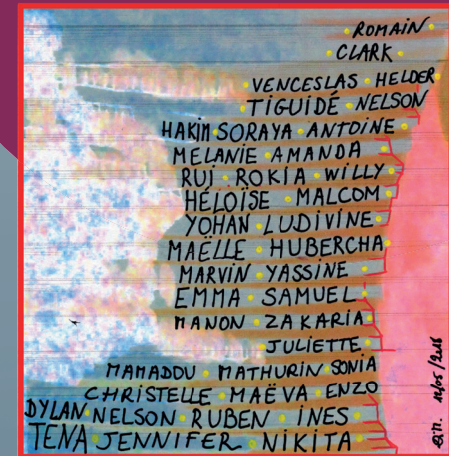 ROMAIN
CLARK
VENCESLAS • HELDER
TIGUIDÉ • NELSON
HAKIM • SORAYA • ANTOINE
MELANIE • AMANDA
RUI • ROKIA • WILLY
HÉLOÏSE • MALCOM
YOHAN • LUDIVINE
MAËLLE • HUBERCHA
MARVIN • YASSINE
EMMA • SAMUEL
MANON • ZAKARIA
JULIETTE
MAMADOU • MATHURIN • SONIA
CHRISTELLE • MAËVA • ENZO
DYLAN • NELSON • RUBEN • INES
TENA • JENNIFER • NIKITA